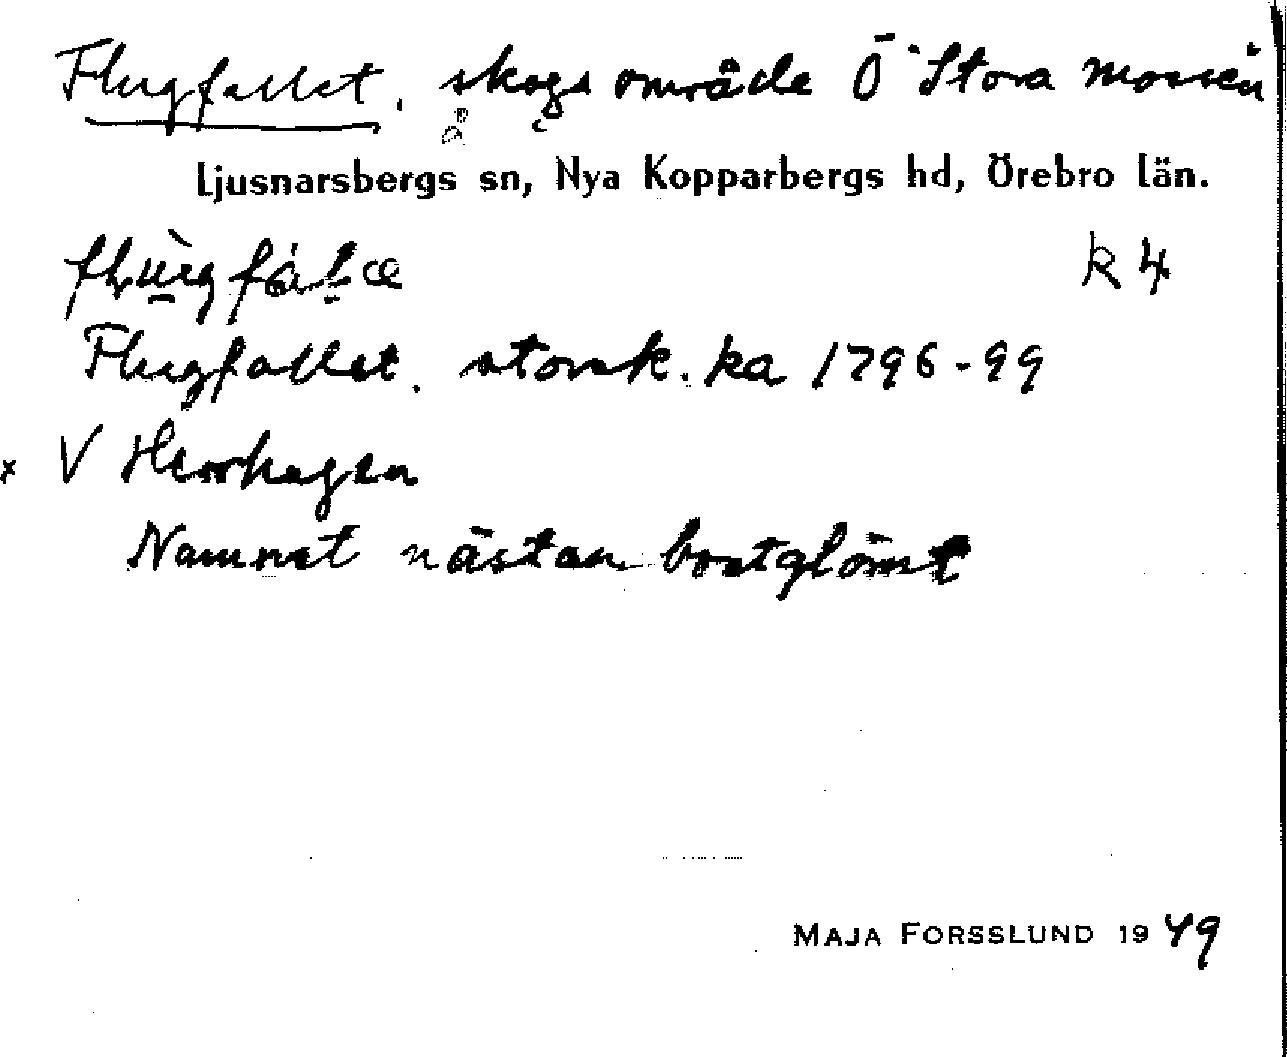 Flugfallet. skogsområde Ö Stora mossen
Ljusnarsbergs sn, Nya Kopparbergs hd, Örebro län.
k 4
Flugfallet. storsk. ka 1796-99
x V Herrhagen
Namnet nästan bortglömt
MAJA FORSSLUND 1949